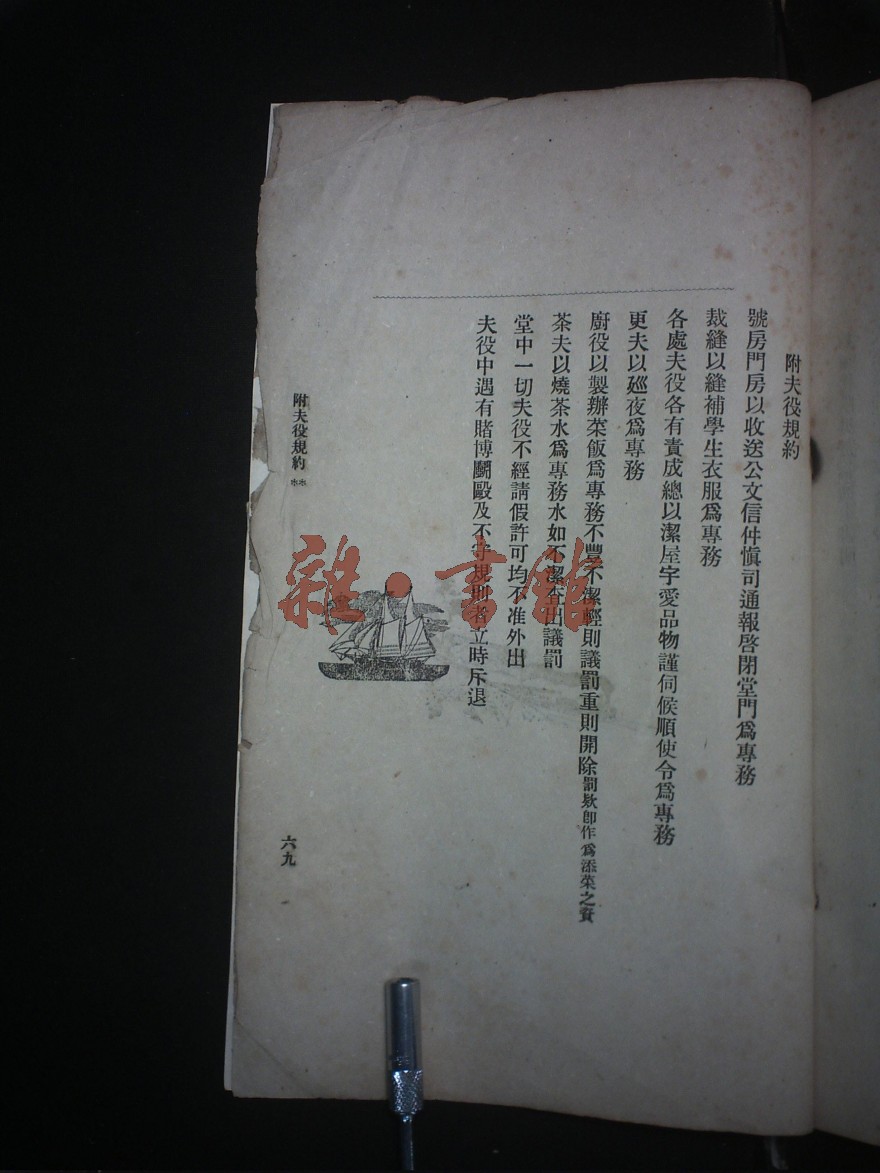 附夫役規約
號房門房以收送公文信仲愼司通報啓閉堂門爲專務
裁縫以縫補學生衣服爲專務
各處夫役各有責成總以潔屋宇愛品物謹伺候順使令爲專務
更夫以廵夜爲專務
廚役以製辦菜飯爲專務不豐不潔輕則議罰重則開除罰欵卽作爲添菜之資
茶夫以燒茶水爲專務水如不潔查出議罰
堂中一切夫役不經請假許可均不准外出
夫役中遇有賭博鬭毆及不守規則者立時斥退
附夫役規約
六九
雜·書館